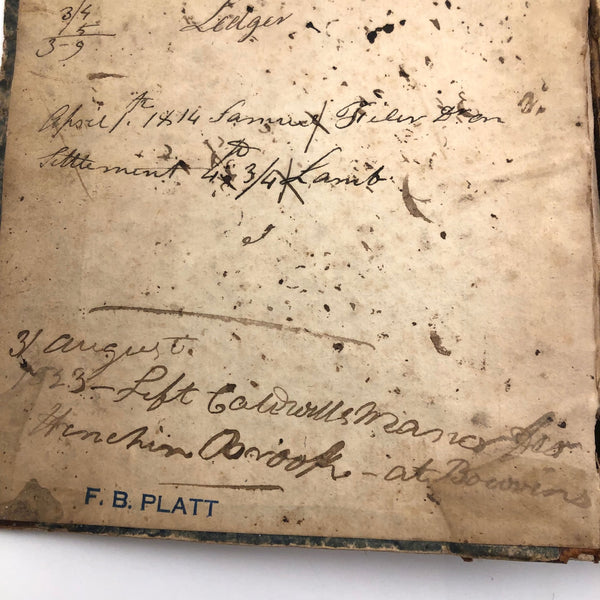 3/4
Ledger
3-9
April 1th 1814 Samuel Filer Dr on
Settlement 4 lb 3/4 Lamb
31 August.
1823 - Left Caldwells Manor for
Hinchin Brook - at Bowrins
F. B. PLATT